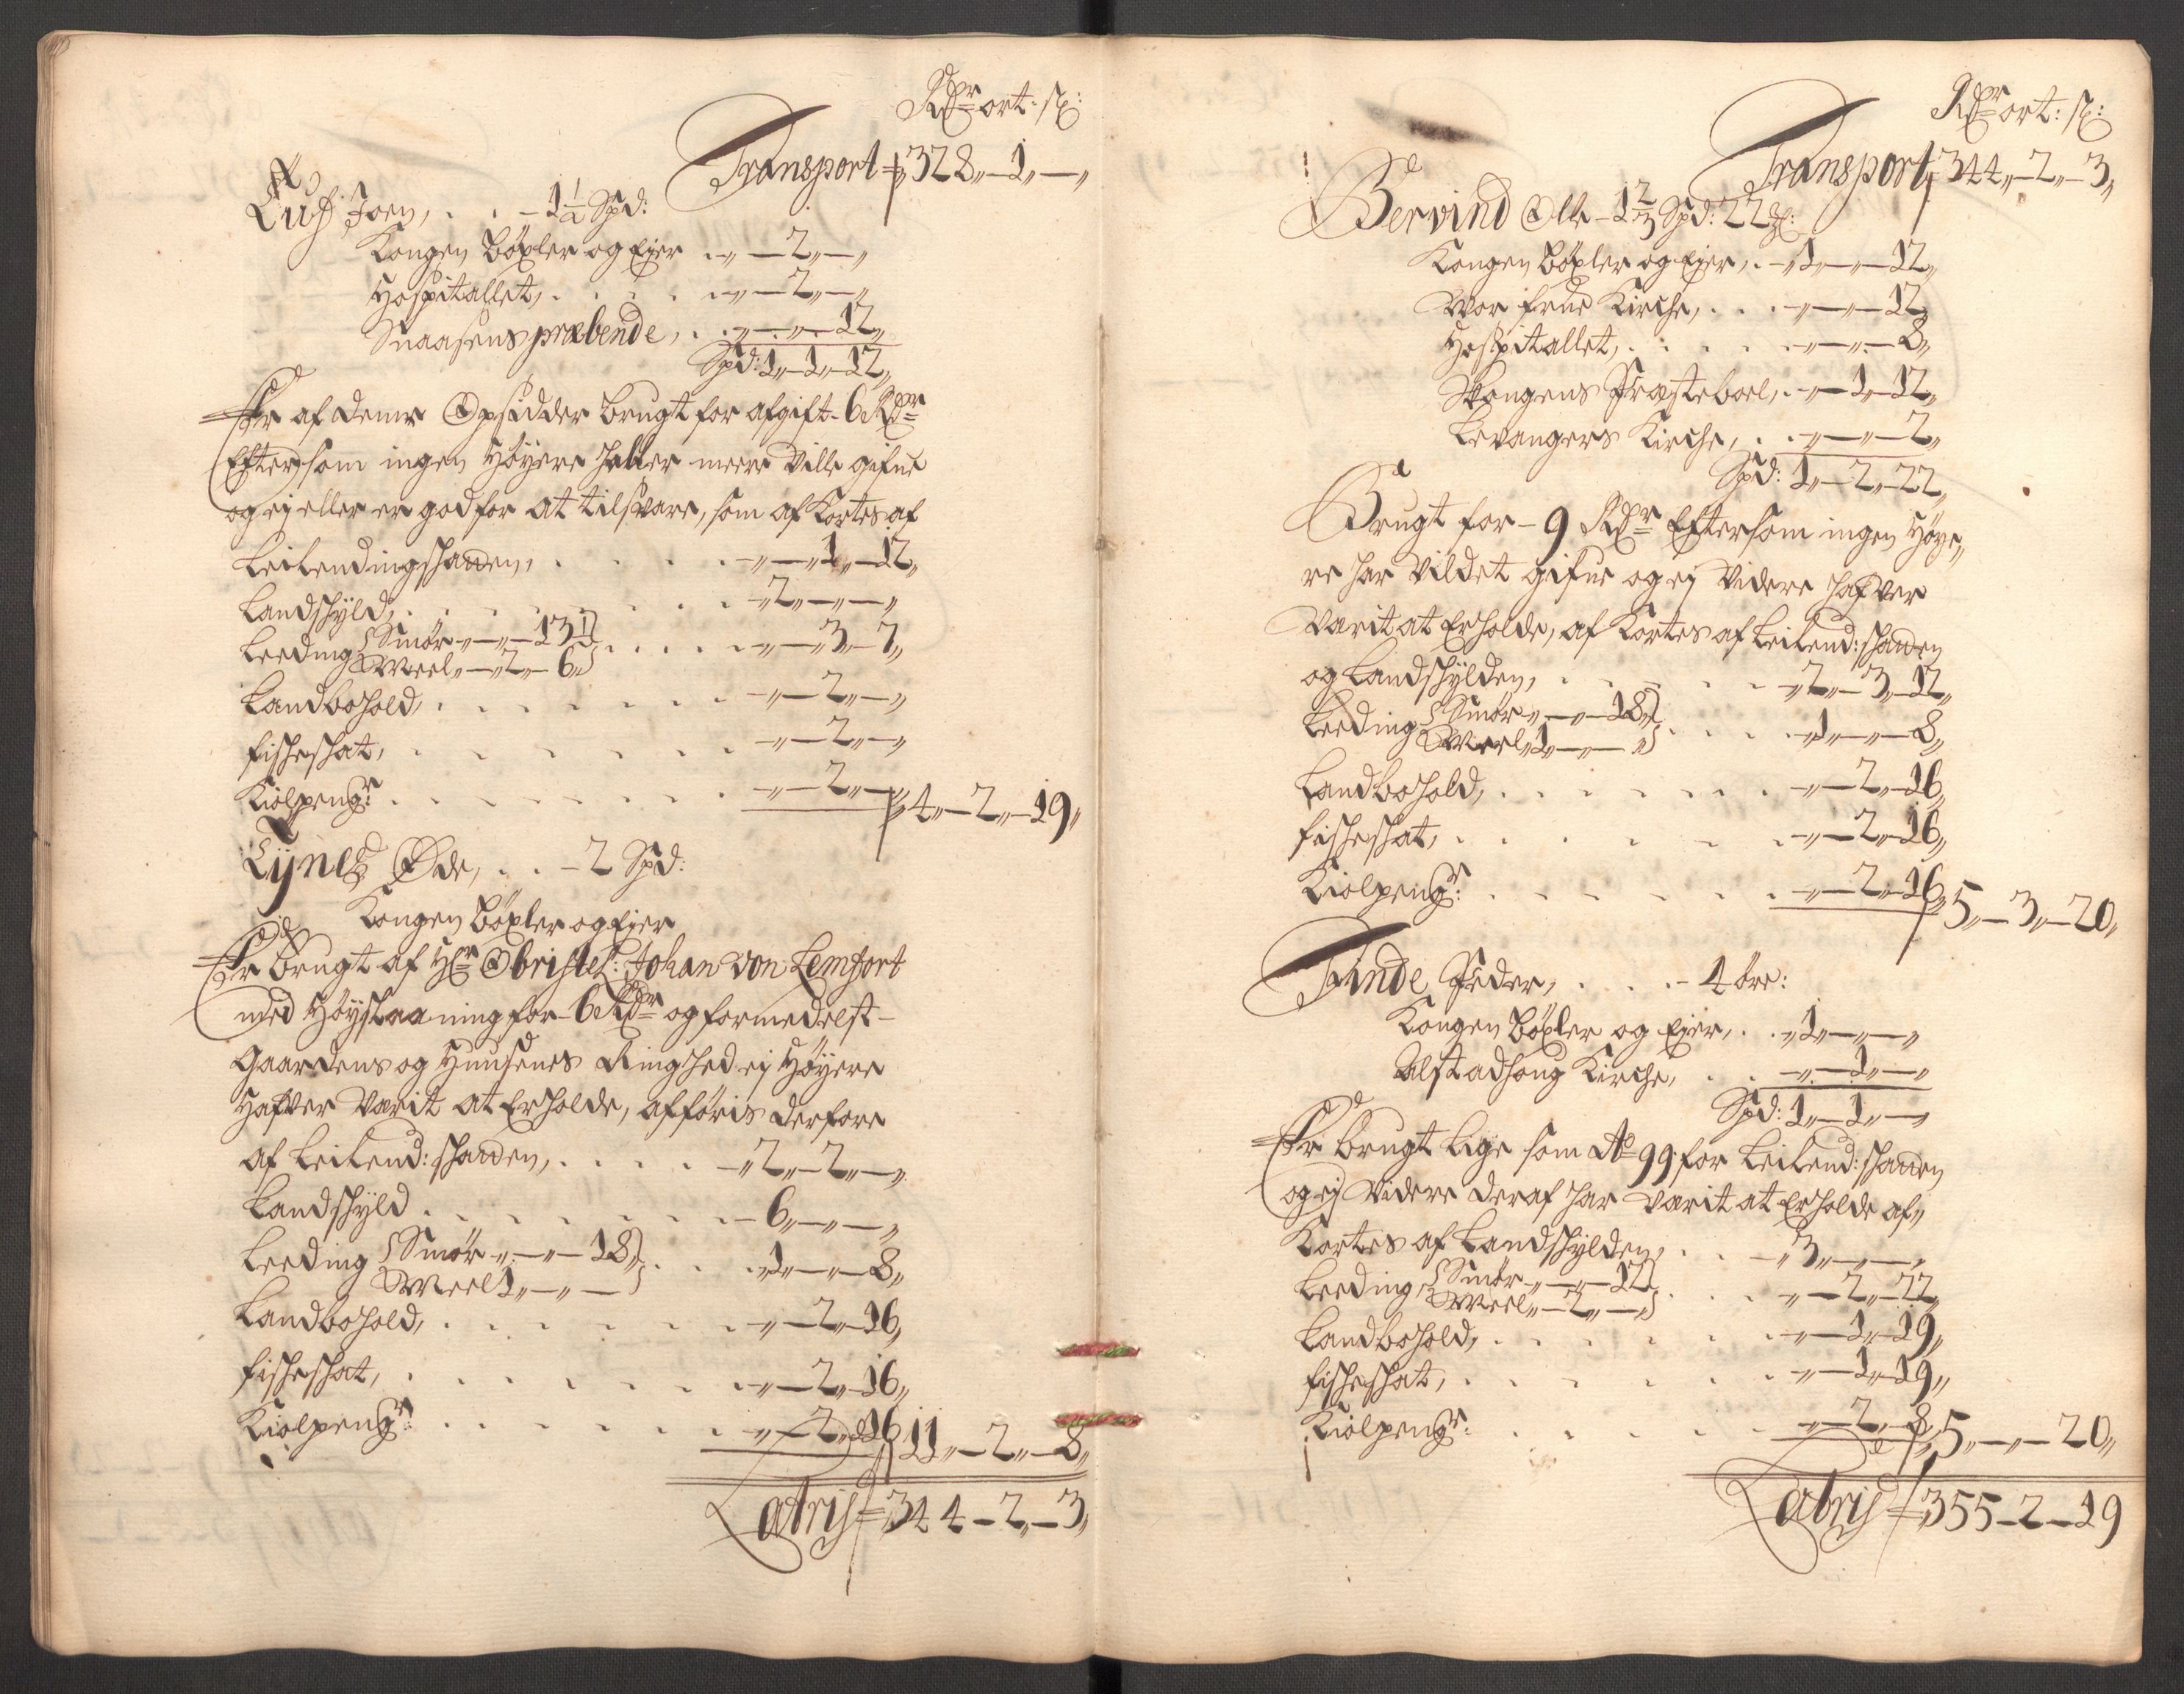 Rdr ort: s:
Transport 328,,-1,,-,,
Luf Joen, . . - 1 1/2 Spd:
Kongen Böxler og Ejer . ,,-2,,-,,
Hospitallet, . . . . ,,-2,,-,,
Snaasens præbende, . . ,,-,,-12,,
Spd: 1,,-1,,-12,,
Er af denne Opsidder brugt for afgift 6 Rdr
Eftersom ingen Höyere heller meere Ville gifue
og ej eller er god for at tilsvare, som af Kortes af
Leilendingshatten, . . . . ,,-1,,-12,,
Landshyld, . . . . . ,,2,,-,,-,,
Leeding { Smör ,,-,,-13 1/2
Meel ,,-2,,-6,, } . . . . ,,-3,,-7,,
Landbohold, . . . . . ,,-2,,-,,
fisheshat, . . . . . ,,-2,,-,,
Kiölpengr: . . . . . ,,-2,,-,, 4,,-2,,-19,,
Tynes Øde, . . - 2 Spd:
Kongen Böxler og Ejer
Er brugt af Hr Obristel: Johan von Lemfort
med Höyslaaning for 6 Rdr og formedelst
Gaardens og Huusenes Ringhed ej Höyere
Hafver Varit at Erholde, afföris derfore
af Leilend: shatten, . . . . ,,2,,-2,,-,,
Landshyld . . . . . - 6,,-,,-,,
Leeding { Smör ,,-,,-18
Meel 1,,-,,- } . . . ,,1,,-,,-8,,
Landbohold, . . . . . ,,-2,,-16,,
fisheshat, . . . . . ,,-2,,-16,,
Kiölpengr: . . . . . ,,-2,,-16 11,,-2,,-8,,
Latris 344-2,,-3,,
Rdr ort: s:
Transport 344,,-2,,-3,,
Bervind Ole - 1 2/3 Spd: 22 :
Kongen Böxler og Ejer, . ,,1,,-,,-12,,
Vor frue Kirche, . . . ,,-,,-12,,
Hospitallet, . . . . . ,,-,,-8,,
Skongens Præsteboel, . ,,-1,,-12,,
Levangers Kirche, . . ,,-,,-2,,
Spd: 1,,-2,,-22,,
Brugt for - 9 Rdr Eftersom ingen Höye,,
re har Vildet gifue og ej Videre hafver
Varit at Erholde, af Kortes af Leilend: shatten
og Landshylden, . . . . . ,,2,,-3,,-12,,
Leeding { Smör ,,-,,-18,,
Meel ,,1,,-,,- ,, } . . . . ,,1,,-,,-8,,
Landbohold, . . . . . ,,-2,,-16,,
fisheshat, . . . . . ,,-2,,-16,,
Kiölpengr: . . . . . ,,-2,,-16,, 5,,-3,,-20,,
Tinde Peder, . . . . - 4 öre:
Kongen Böxler og Ejer, . . ,,1,,-,,-,,
Alstadhoug Kirche, . . ,,-1,,-,,
Spd: 1,,-1,,-,,
Er brugt Lige som Ao 99 for Leilend: shatten
og ej Videre deraf har Varit at Erholde af,,
Kortes af Landshylden, . . . ,,3,,-,,-,,
Leeding { Smör ,,-,,-12
Meel ,,-2,,-,, } . . . . ,,-2,,-22,,
Landbohold, . . . . . ,,-1,,-19,,
fisheshat, . . . . . ,,-1,,-19,,
Kiölpengr: . . . . . ,,-2,,-8,, 5,,-,,-20,,
Latris 355-2-19